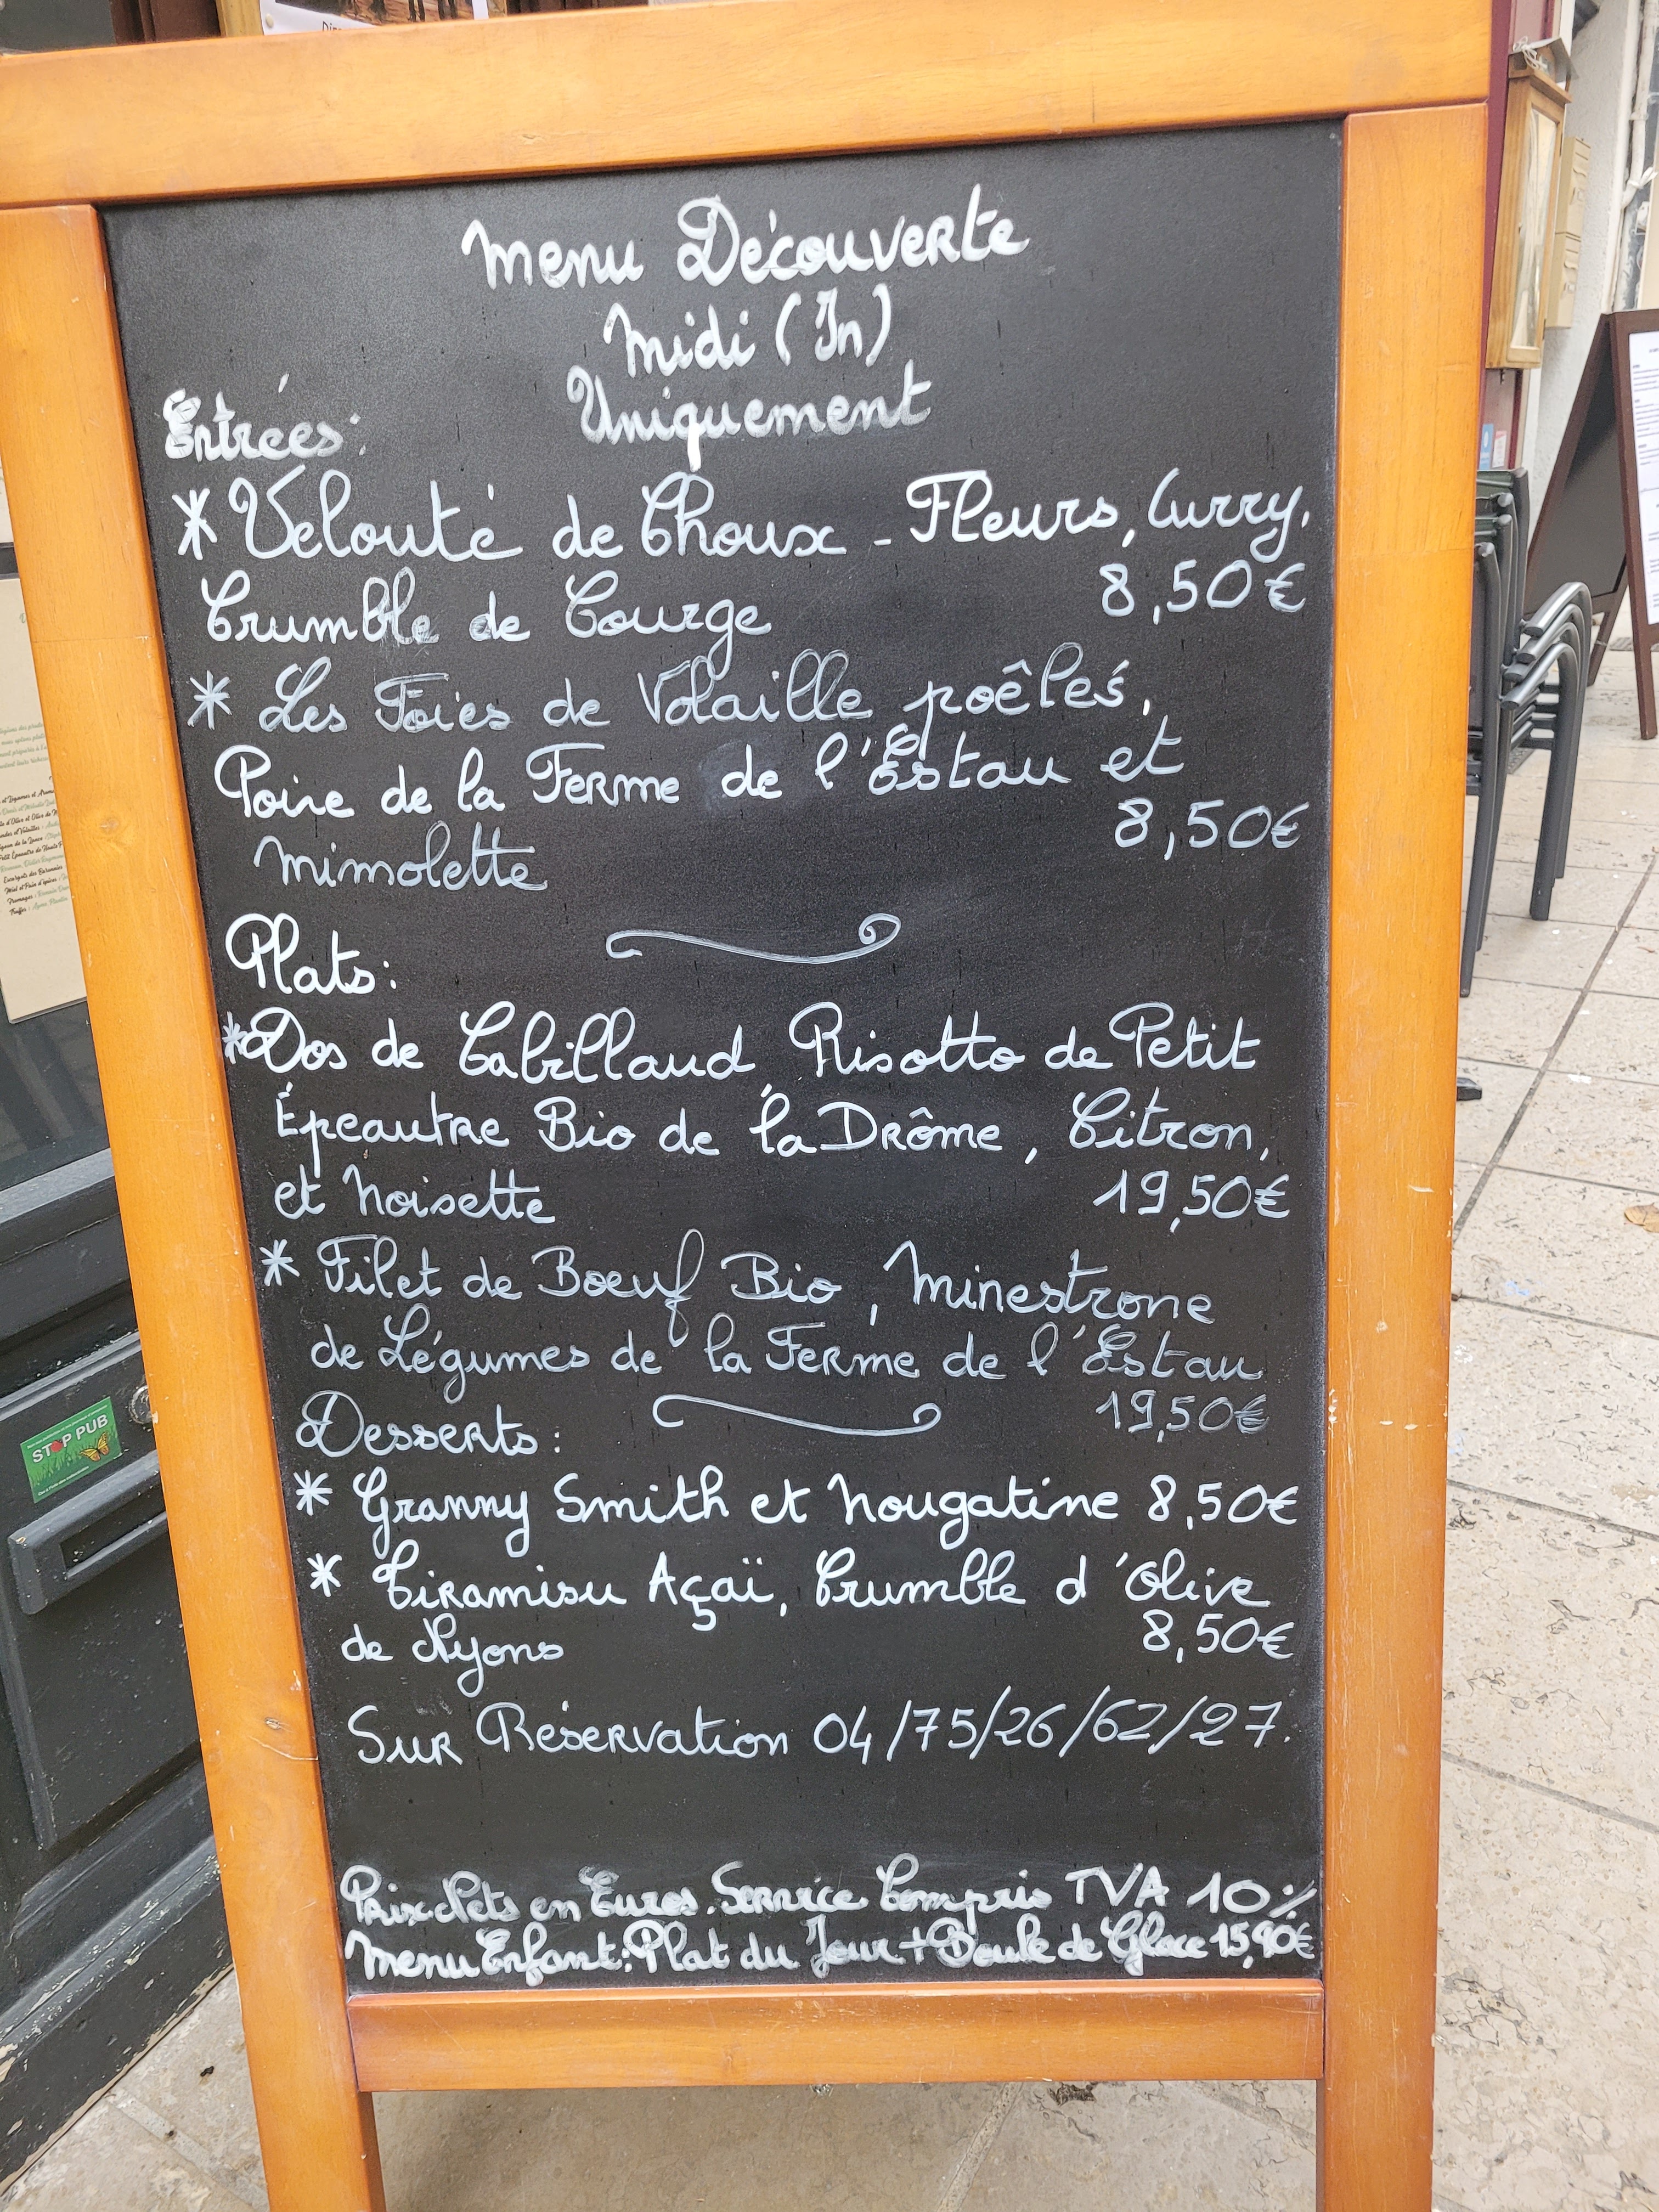 Menu Découverte
Midi (In)
Uniquement
Entrées:
* Velouté de Choux - Fleurs, Curry,
Crumble de Courge 8,50€
* Les Foies de Volaille poêlés,
Poire de la Ferme de l'Estau et
Mimolette 8,50€
Plats:
*Dos de Cabillaud, Risotto de Petit
Épeautre Bio de la Drôme, Citron,
et Noisette 19,50€
* Filet de Boeuf Bio, Minestrone
de Légumes de la Ferme de l'Estau
19,50€
Desserts:
* Granny Smith et Nougatine 8,50€
* Tiramisu Açaï, Crumble d'Olive
de Nyons 8,50€
Sur Réservation 04/75/26/62/27.
Prix Nets en Euros. Service Compris TVA 10%
Menu Enfant: Plat du Jour + Boule de Glace 15,90€
STOP PUB